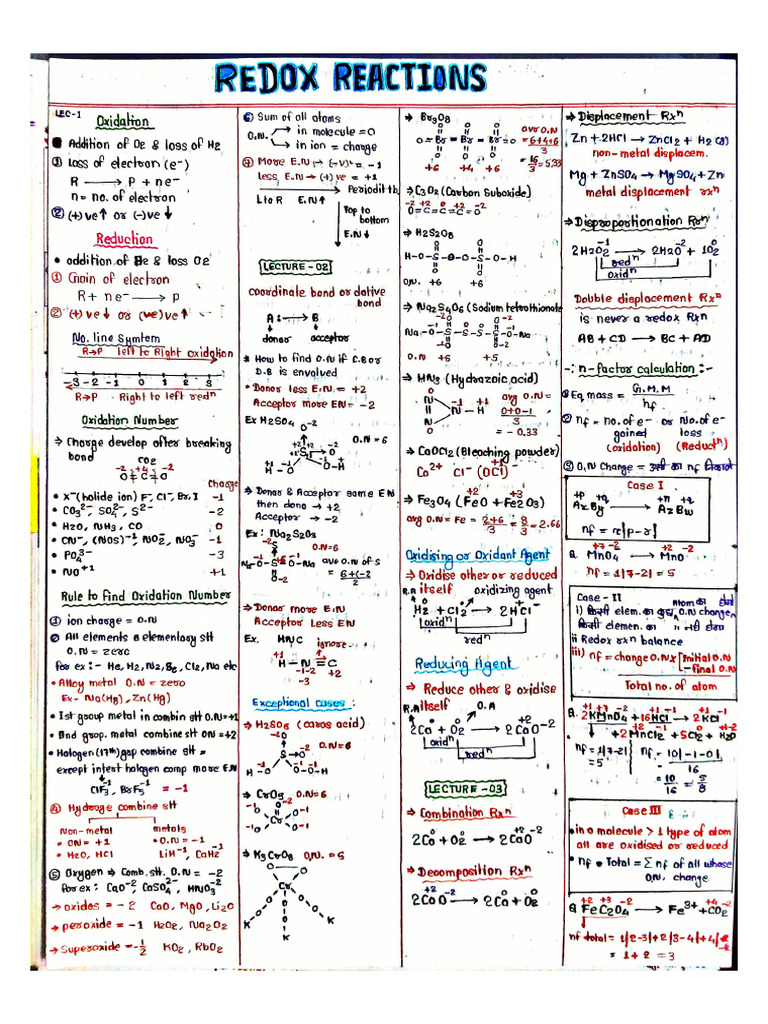 REDOX REACTIONS
LEC-1
Oxidation
Addition of O2 & loss of H2
① Loss of electron (e⁻)
R → P + ne⁻
n = no. of electron
② (+)ve↑ or (-)ve↓
Reduction
• addition of He & loss O2
① Gain of electron
R + ne⁻ → P
② (+)ve↓ or (-ve)ve↑
No. line Symtem
R→P left to Right oxidation
-3 -2 -1 0 1 2 3
R→P Right to left redⁿ
Oxidation Number
⇒ Charge develop after breaking
bond CO2
-2 +4 -2
O=C=O
Charge
• X⁻ (halide ion) F⁻, Cl⁻, Br, I -1
• CO₃²⁻ SO₄²⁻, S²⁻ -2
• H2O, NH3, CO 0
• CN⁻, (NOs)⁻¹ NO₂⁻, NO₃⁻ -1
• PO₄³⁻ -3
• NO⁺¹ +1
Rule to find Oxidation Number
① ion charge = O.N
② All elements & elementary stt
O.N = zero
for ex:- He, H2, N2, Be, Cl2, Na etc
• Alloy metal O.N = zero
Ex- Na(Hg), Zn(Hg)
• Ist group metal in combin stt O.N=+1
• IInd grop. metal combine stt ON = +2
• Halogen (17th) gap combine stt =
except intest halogen comp more E.N
ClF₃⁻¹, BrF₅⁻¹ = -1
④ Hydroge combine stt
Non-metal metals
• ON = +1 • O.N = -1
• H2O, HCl LiH⁻¹, CaH2⁻¹
⑤ Oxygen ⇒ Comb. stt. O.N = -2
for ex: CaO⁻², CaSO₄⁻², HNO₃⁻²
→ oxides = -2 CaO, MgO, Li2O
→ peroxide = -1 H2O2, Na2O2
→ Superoxide = -1/2 KO2, RbO2
⑥ Sum of all atoms
O.N. in molecule = 0
in ion = charge
⑦ More E.N → (-v)⁻ = -1
less E.N → (+)ve = +1
Periodic tb.
L to R E.N↑
Top to
bottom
E.N↓
LECTURE-02
Coordinate bond or dative
bond
A: → B
donar acceptor
* How to find O.N if C.B or
D.B is envolved
• Donar less E.N = +2
Acceptor more EN = -2
Ex H2SO4
O.N = 6
⇒ Donar & Acceptor same EN
then dono → +2
Acceptor → -2
Ex: Na2S2O3
O.N=6
ave O.N of S
= 6+(-2)/2
⇒ Donar more E.N
Acceptor Less EN
Ex. HNC ignore
+1
H-N≡C +2
-1-2
-3
Exceptional cases:
⇒ H2SO5 (caros acid)
O.N=6
⇒ CrO5 O.N=6
⇒ K3CrO8 O.N. = 5
⇒ Br3O8
O=Br-Br-Br=O
+6 +4 +6
ave O.N
= 6+4+6/3
= 16/3 = 5.33
⇒ C3O2 (Carbon Suboxide)
-2 +2 0 +2 -2
O=C=C=C=O
⇒ H2S2O8
H-O-S-O-O-S-O-H
O.N. +6 +6
⇒ Na2S4O6 (Sodium tetrathionate
Na-O-S-S-S-S-O-Na
O.N +5 +5
⇒ HN3 (Hydrazoic acid)
avg O.N =
0+0-1/3
= -0.33
⇒ CaOCl2 (Bleaching powder)
Ca²⁺ Cl⁻ (OCl)⁻
⇒ Fe3O4 (FeO + Fe2O3)
avg O.N = Fe = 2+6/3 = 8/3 = 2.66
Oxidising or Oxidant Agent
⇒ Oxidise other or reduced
R.A itself oxidizing agent
H2 + Cl2 → 2HCl⁻
oxidⁿ
redⁿ
Reducing Agent
⇒ Reduce other & oxidise
R.A itself O.A
Ca + O2 → 2CaO⁻²
oxidⁿ redⁿ
LECTURE-03
⇒ Combination Rxⁿ
2Ca + O2 → 2CaO
⇒ Decomposition Rxⁿ
2CaO → 2Ca + O2
⇒ Displacement Rxⁿ
Zn + 2HCl → ZnCl2 + H2(g)
non-metal displacem.
Mg + ZnSO4 → MgSO4 + Zn
metal displacement rxⁿ
⇒ Disproportionation Rxⁿ
2H2O2⁻¹ → 2H2O⁻² + 1O2⁰
redⁿ
oxidⁿ
Double displacement Rxⁿ
is never a redox Rxⁿ
AB + CD → BC + AD
-: n-factor calculation:-
① Eq. mass = G.M.M/nf
② nf = no. of e⁻ or No. of e⁻
gained loss
(oxidation) (Reductⁿ)
⑤ O.N Change = उसी का nf
Case I
+p +q +r +q
AxBy → AzBw
nf = x|p-r|
Q. MnO4⁻ → MnO
nf = 1|7-2| = 5
Case - II
i) किसी elem. का कुछ atom का O.N change होता
किसी elemen. का नहीं होता
ii Redox rxⁿ balance
iii) nf = change O.N x [Initial O.N - final O.N
Total no. of atom
Q. 2KMnO4 + 16HCl → 2KCl
+2MnCl2 + 5Cl2 + H2O
nf = 1|7-2| nf = 10|-1-0|/16
= 5
= 10/16 = 5/8
Case III
• in a molecule > 1 type of atom
all are oxidised or reduced
• nf = Total = Σ nf of all whose
O.N. change
Q FeC2O4 → Fe³⁺ + CO2
nf total = 1|2-3|+2|3-4|
= 1 + 2 = 3